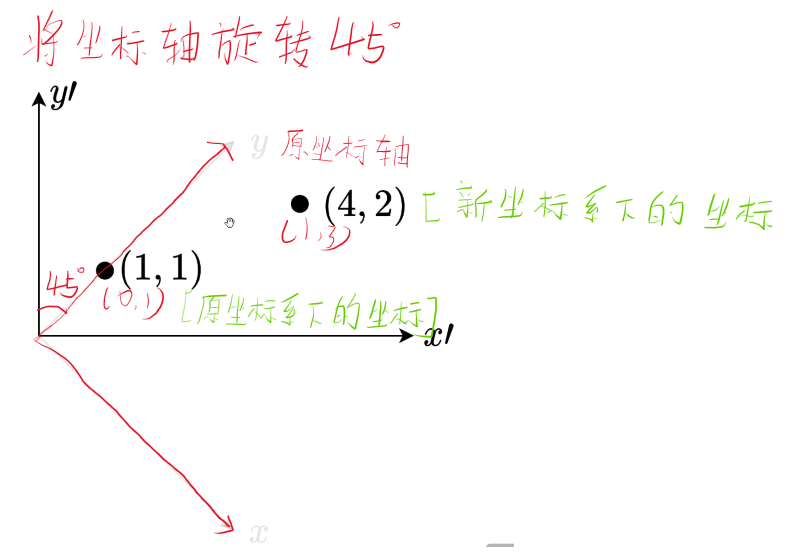 将坐标轴旋转45°
y′
y 原坐标轴
(4, 2) [新坐标系下的坐标
(1,3)
45° (1, 1)
(0,1) [原坐标系下的坐标]
x′
x